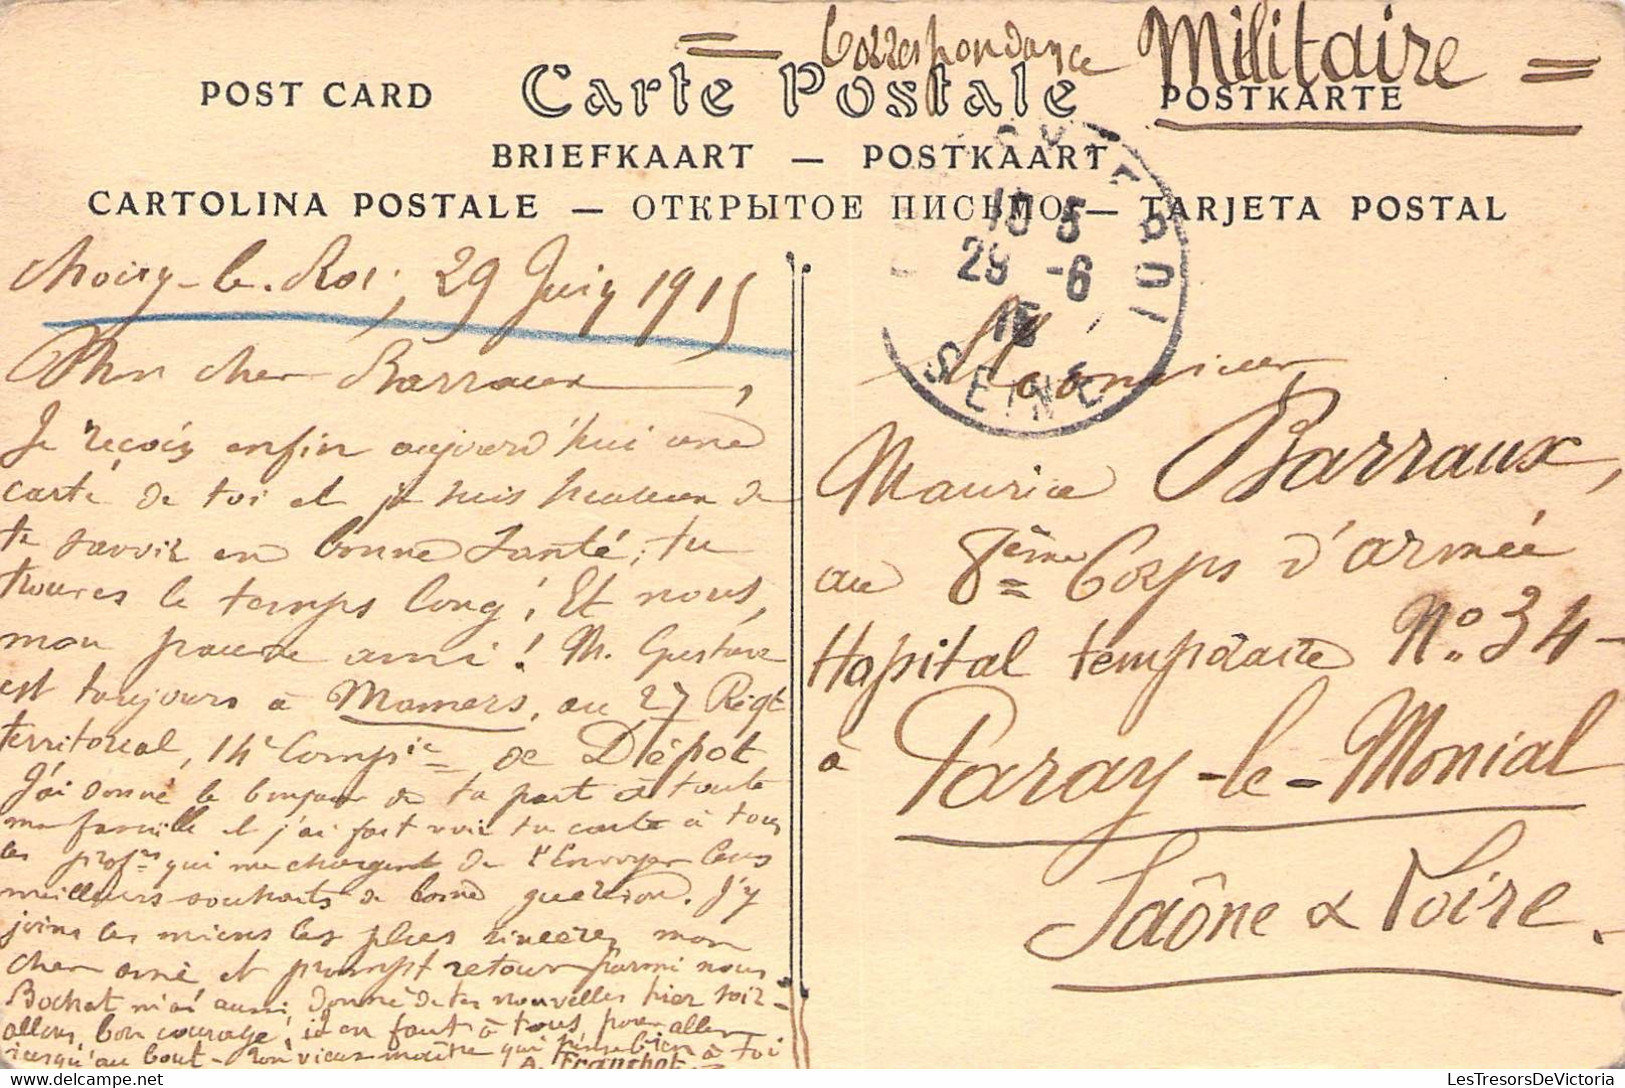 = Correspondance Militaire =
POST CARD Carte Postale POSTKARTE
BRIEFKAART — POSTKAART
CARTOLINA POSTALE — ОТКРЫТОЕ ПИСЬМО — TARJETA POSTAL
Choisy-le-Roi, 29 Juin 1915
Mon cher Barraux,
Je reçois enfin aujourd'hui une
carte de toi et je suis heureux de
te savoir en bonne santé; tu
trouves le temps long! Et nous,
mon pauvre ami! M. Gustave
est toujours à Mamers, au 27 Régt
territorial, 14e Compie de Dépôt
J'ai donné le bonjour de ta part à toute
ma famille et j'ai fait voir ta carte à tous
les profrs qui me chargent de t'envoyer leurs
meilleurs souhaits de bonne guérison. J'y
joins les miens les plus sincères, mon
cher ami, et prompt retour parmi nous.
Bochet m'a aussi donné de tes nouvelles hier soir.
allons, bon courage, il en faut à tous, pour aller
jusqu'au bout. Ton vieux maître qui pense bien à toi
A. Franchot
Monsieur
Maurice Barraux,
au 8ème Corps d'armée
Hôpital temporaire No. 34
à Paray-le-Monial
Saône & Loire.
15 5
29 -6
15
SEINE
LesTresorsDeVictoria